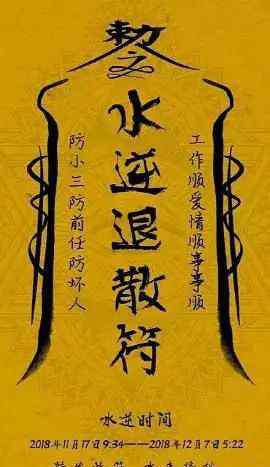 敕
水逆退散符
工作顺爱情顺事事顺
防小三防前任防坏人
水逆时间
2018年11月17日9:34——2018年12月7日5:22